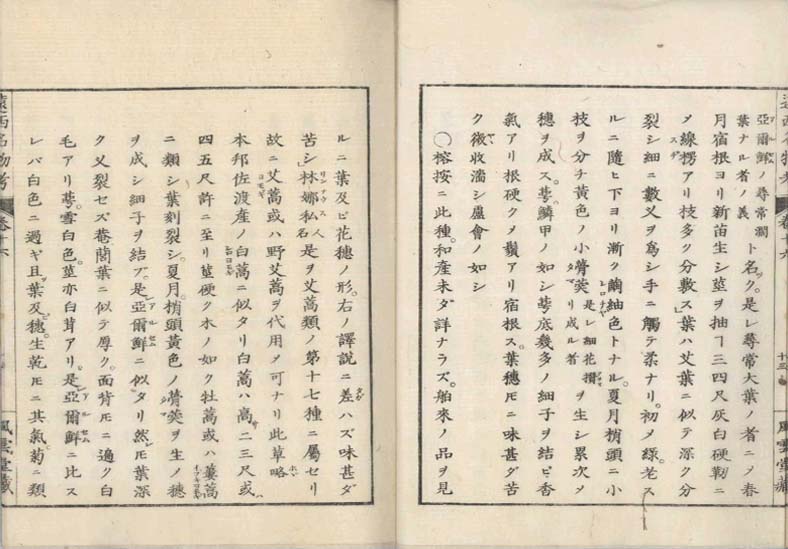 亞爾鮮ノ尋常濶
葉ナル者ノ義ト名ク。是レ尋常大葉ノ者ニ〆春
月宿根ヨリ新苗生シ莖ヲ抽ヿ三四尺灰白硬靱ニ
〆線楞アリ枝多ク分敷ス」葉ハ艾葉ニ似テ深ク分
裂シ細ニ數叉ヲ爲シ手ニ觸テ柔ナリ。初メ綠。老ス
ルニ隨ヒ下ヨリ漸ク繭紬色トナル。夏月梢頭ニ小
枝ヲ分チ黄色ノ小膏葖是レ細花攅
タマリ成ル者ヲ生シ累次〆
穗ヲ成ス。蕚鱗甲ノ如シ蕚底幾多ノ細子ヲ結ビ香
氣アリ根硬ク〆鬚アリ宿根ス。葉穗𪜈ニ味甚ダ苦
ク微收濇シ盧會ノ如シ
〇榕按ニ此種。和産未ダ詳ナラズ。舶來ノ品ヲ見
風雲堂藏
ルニ葉及ビ花穗ノ形。右ノ譯説ニ差ハズ味甚ダ
苦シ」林娜私人名是ヲ艾蒿類ノ第十七種ニ屬セリ
故ニ艾蒿或ハ野艾蒿ヲ代用〆可ナリ此草略
本邦佐渡産ノ白蒿ニ似タリ白蒿ハ高サ二三尺或ハ
四五尺許ニ至リ莖硬ク木ノ如ク牡蒿或ハ蔞蒿
ニ類シ葉刻裂シ。夏月。梢頭黄色ノ膏葖ヲ生ノ穗
ヲ成シ細子ヲ結ブ。是レ亞爾鮮ニ似タリ然𪜈葉深
ク叉裂セズ菴䕡葉ニ似テ厚ク。面背𪜈ニ遍ク白
毛アリ蕚。雪白色。莖亦白茸アリ。是レ亞爾鮮ニ比ス
レバ白色ニ過ギ且ツ葉及ビ穗。生乾𪜈ニ其氣。菊ニ類
遠西名物考 卷十六
風雲堂藏